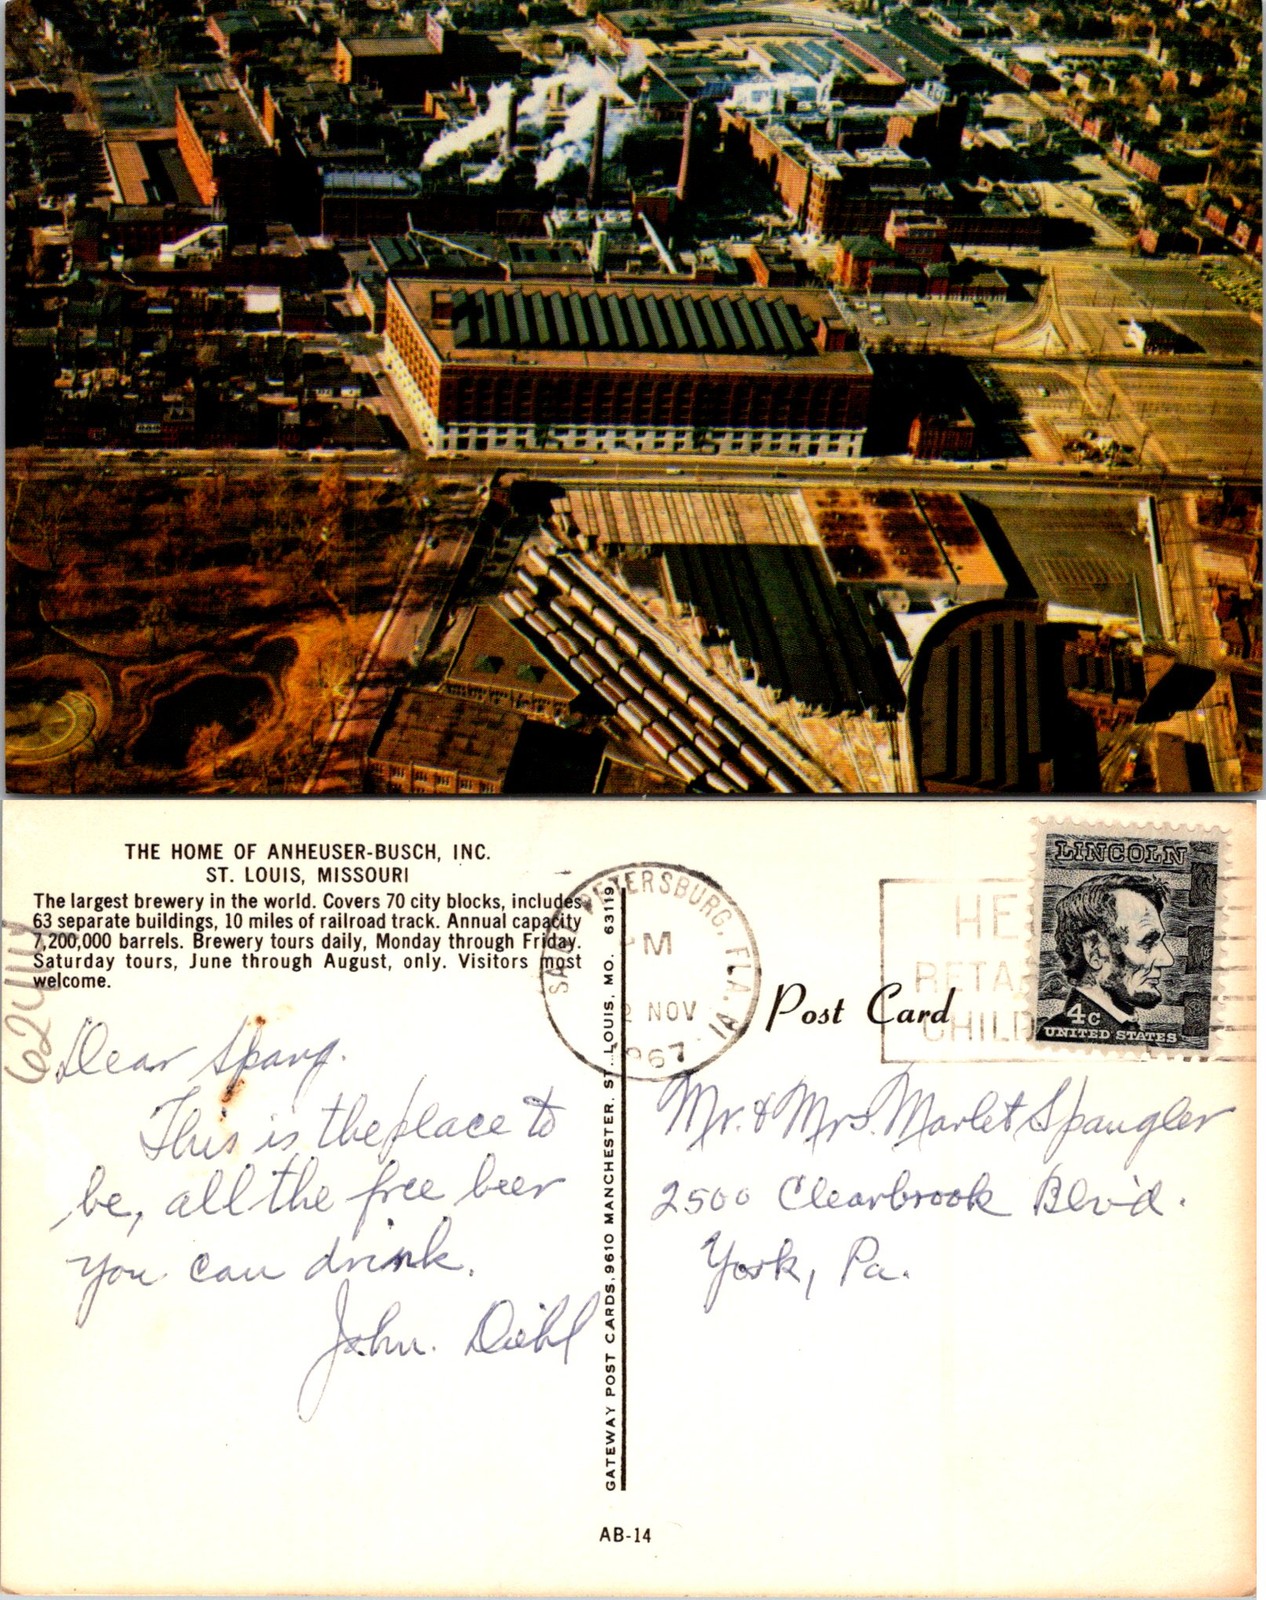 THE HOME OF ANHEUSER-BUSCH, INC.
ST. LOUIS, MISSOURI
The largest brewery in the world. Covers 70 city blocks, includes
63 separate buildings, 10 miles of railroad track. Annual capacity
7,200,000 barrels. Brewery tours daily, Monday through Friday.
Saturday tours, June through August, only. Visitors most
welcome.
Dear Spang.
This is the place to
be, all the free beer
you can drink.
John. Diehl
GATEWAY POST CARDS, 9610 MANCHESTER, ST. LOUIS, MO. 63119
AB-14
PETERSBURG, FLA.
PM
NOV
1967
Post Card
HE
RETA
CHILD
LINCOLN
4c
UNITED STATES
Mr. & Mrs. Marlet Spangler
2500 Clearbrook Blv'd.
York, Pa.